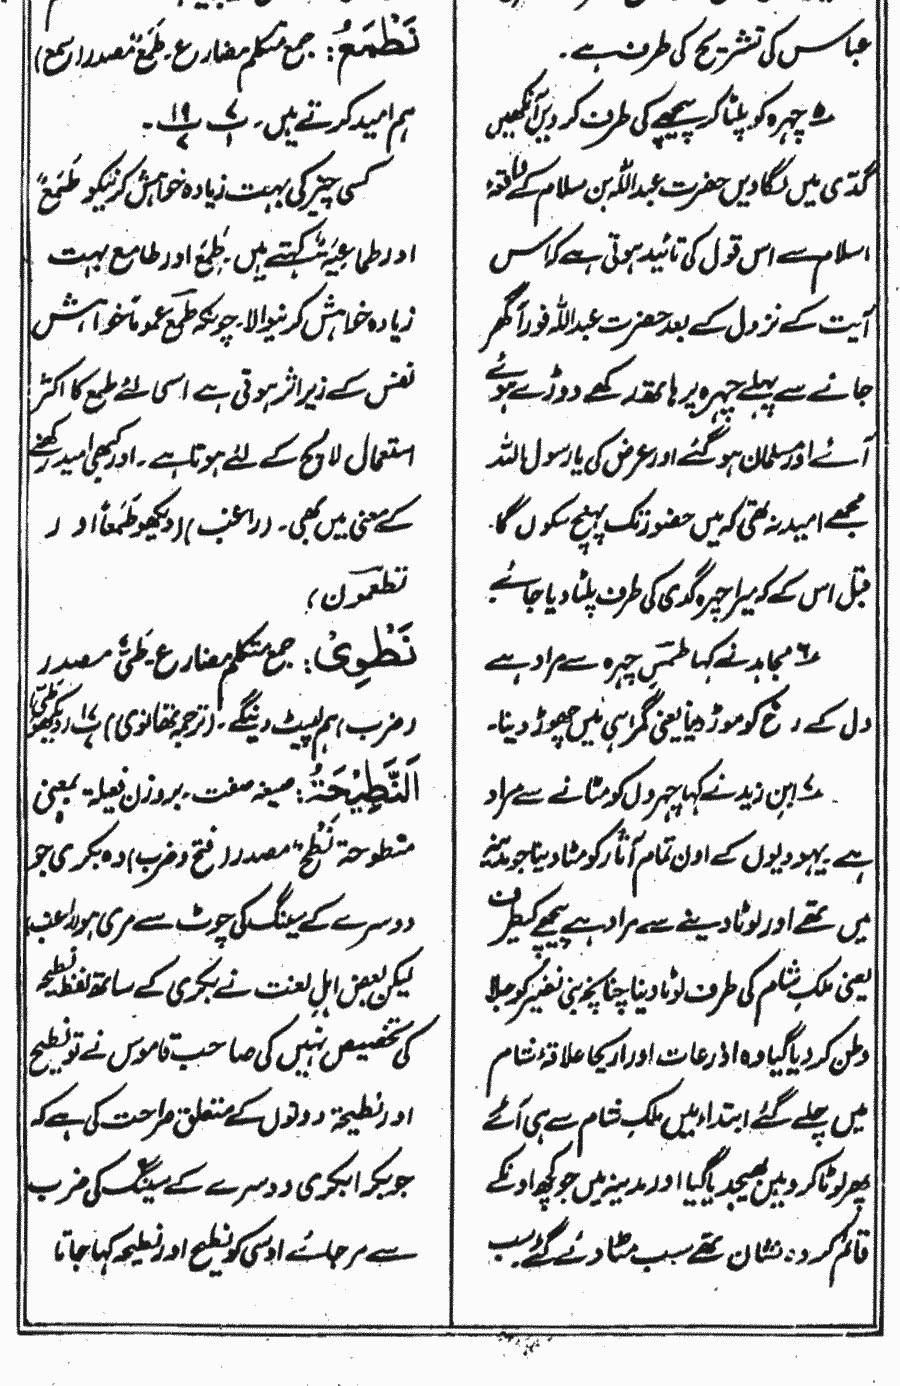 عباس کی تشریح کی طرف ہے۔
۵ چہرہ کو پلٹا کر پیچھے کی طرف کر دیں آنکھیں
گدّی میں لگا دیں حضرت عبداللہ بن سلام کے واقعۂ
اسلام سے اس قول کی تائید ہوتی ہے کہ اس
آیت کے نزول کے بعد حضرت عبداللہ فوراً گھر
جانے سے پہلے چہرہ پر ہاتھ رکھے دوڑے ہوئے
آئے اور مسلمان ہو گئے اور عرض کی یا رسول اللہ
مجھے امید نہ تھی کہ میں حضور تک پہنچ سکوں گا۔
قبل اس کے کہ میرا چہرہ گدی کی طرف پلٹا دیا جائے
۶ مجاہد نے کہا طمس چہرہ سے مراد ہے
دل کے رخ کو موڑ دینا یعنی گمراہی میں چھوڑ دینا۔
۷ ابن زید نے کہا چہروں کو مٹانے سے مراد
ہے یہودیوں کے اون تمام آثار کو مٹا دینا جو مدینہ
میں تھے اور لوٹا دینے سے مراد ہے پیچھے کیطرف
یعنی ملک شام کی طرف لوٹا دینا چنانچہ بنی نضیر کو جلا
وطن کر دیا گیا وہ اذرعات اور اریحا علاقۂ شام
میں چلے گئے ابتداءً میں ملک شام سے ہی آئے تھے
پھر لوٹا کر وہیں بھیجدیا گیا اور مدینہ میں جو کچھ اونکے
قائم کردہ نشان تھے سب مٹا دئے گئے سب
نَطْمَعُ: جمع متکلم مضارع۔ طَمْعٌ مصدر (سمع)
ہم امید کرتے ہیں۔ پ ۷/۱ پ ۱۹/۷۔
کسی چیز کی بہت زیادہ خواہش کرنیکو طَمَعٌ
اور طماعیۃ کہتے ہیں۔ طَمِعٌ اور طامع بہت
زیادہ خواہش کرنیوالا۔ چونکہ طمع عموماً خواہش
نفس کے زیر اثر ہوتی ہے اسی لئے طمع کا اکثر
استعمال لالچ کے لئے ہوتا ہے۔ اور کبھی امید رکھنے
کے معنی میں بھی۔ (راغب) (دیکھو طَمَعاً اور
تطمعون)
نَطْوِیْ: جمع متکلم مضارع۔ طَیٌّ مصدر
(ضرب) ہم لپیٹ دینگے۔ (ترجمہ تھانوی) پ ۱۷ (دیکھو طَیّ)
اَلنَّطِیْحَۃُ: صیغہ صفت۔ بروزن فعیلۃ بمعنی
منطوحۃ نَطْحٌ مصدر (فتح و ضرب) وہ بکری جو
دوسرے کے سینگ کی چوٹ سے مری ہو (راغب)
لیکن بعض اہل لغت نے بکری کے ساتھ لفظ نطیحۃ
کی تخصیص نہیں کی صاحب قاموس نے تو نطیح
اور نطیحۃ دونوں کے متعلق صراحت کی ہے کہ
جو بکرا بکری دوسرے کے سینگ کی ضرب
سے مر جائے اوسی کو نطیح اور نطیحہ کہا جاتا